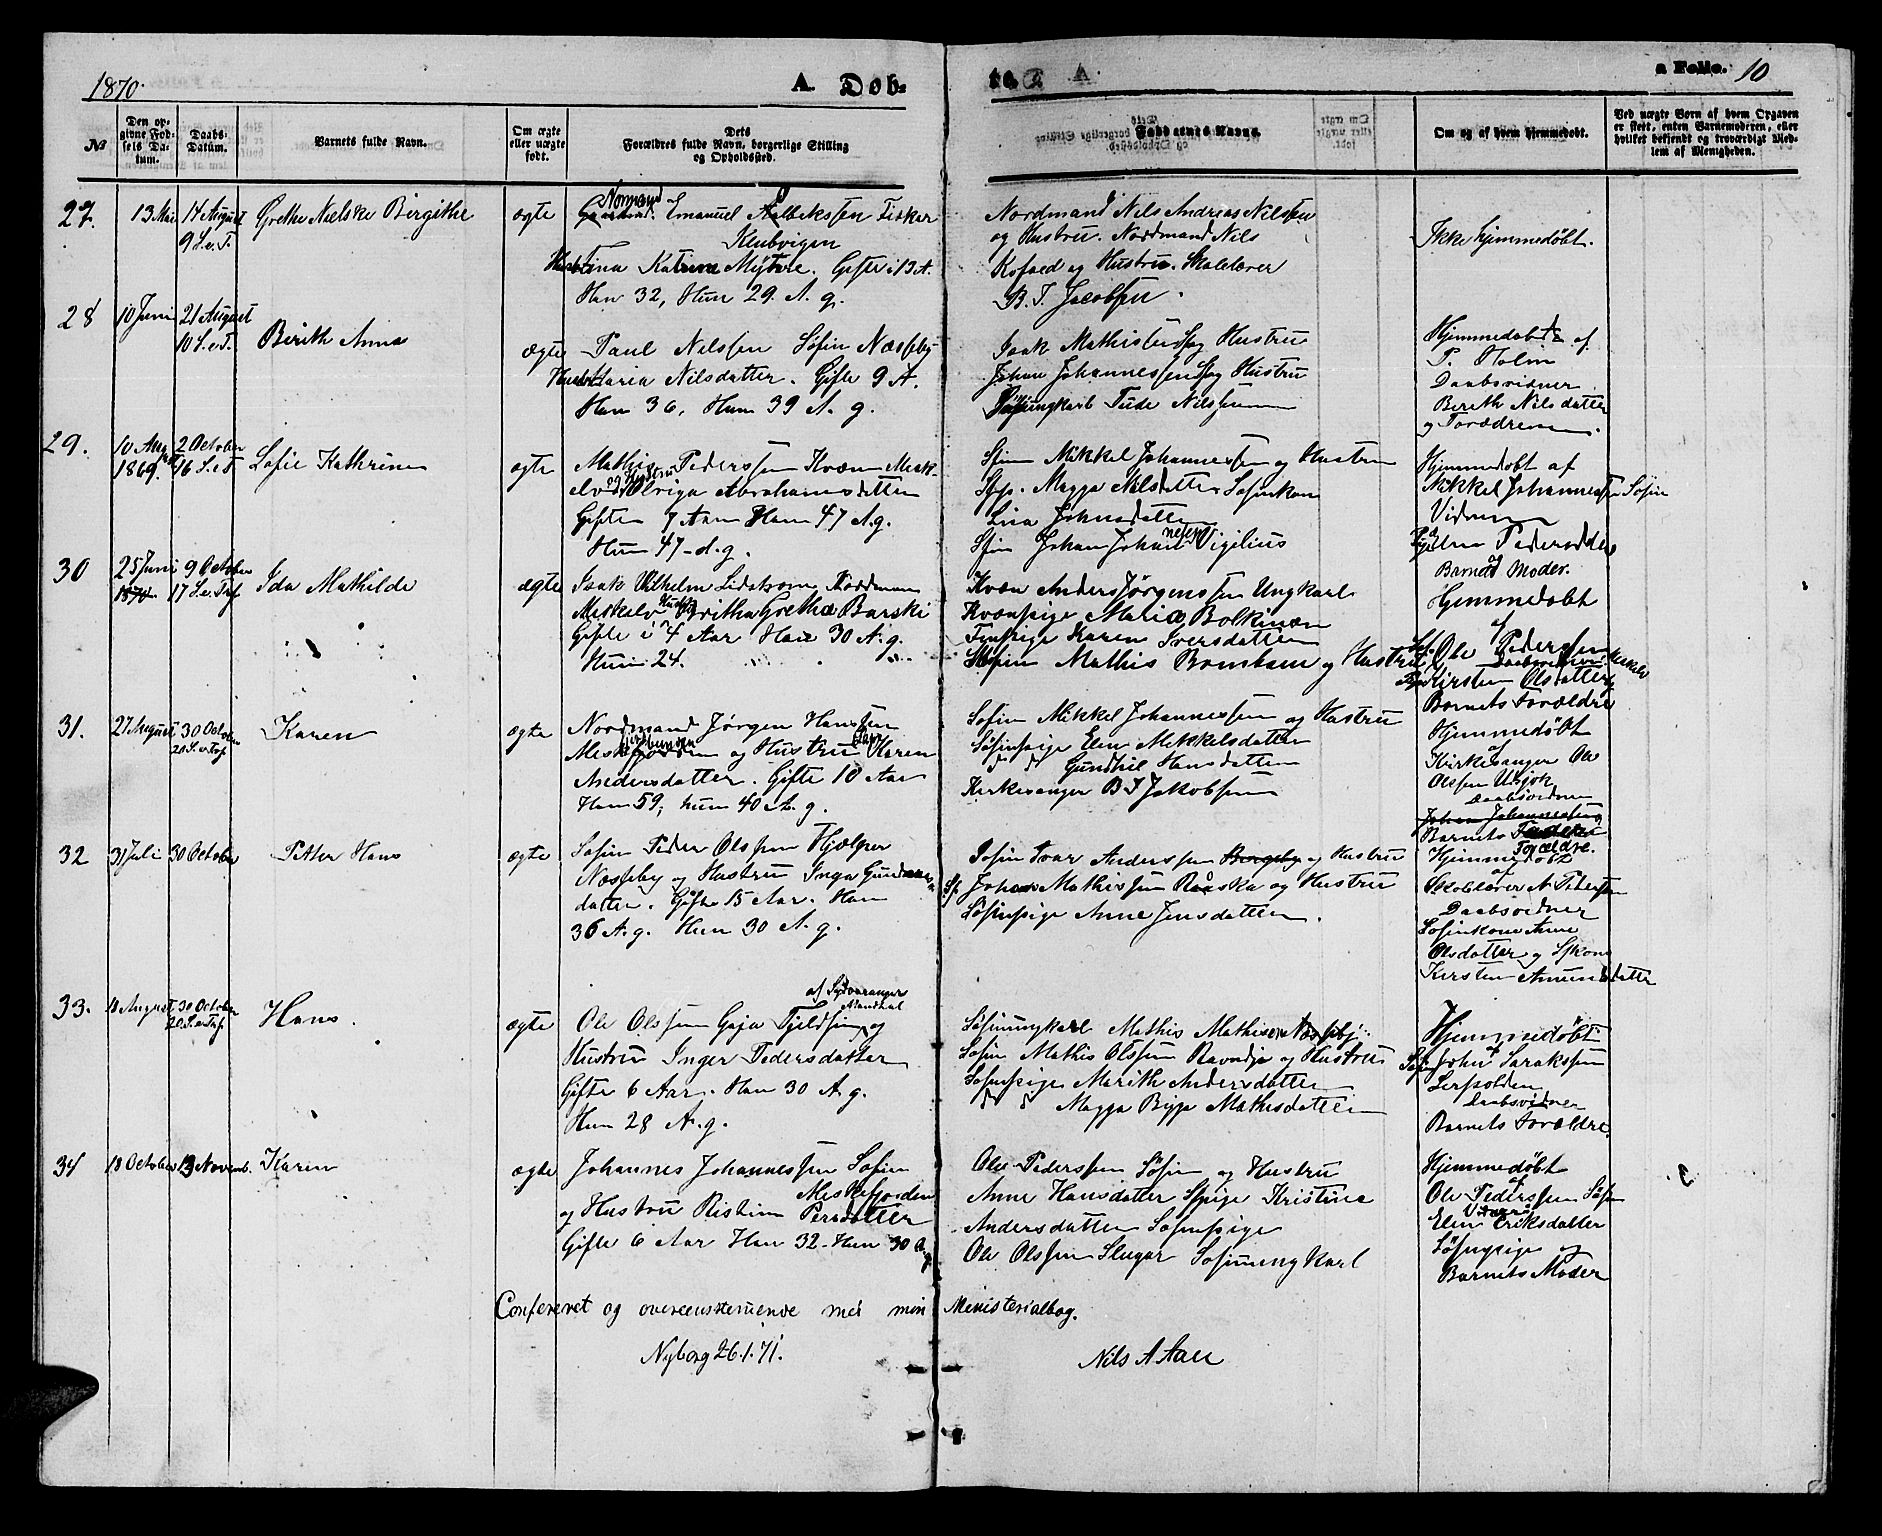 1870.
A. Døb-
te.
a Folio. 10
№
Den op-
givne Fød-
sels Da-
tum.
Daabs-
Datum.
Barnets fulde Navn.
Om ægte
eller uægte
født.
Dets
Forældres fulde Navn, borgerlige Stilling
og Opholdssted.
Faddernes Navne.
Om og af hvem hjemmedøbt.
Ved uægte Børn af hvem Opgaven
er skeet, enten Barnemoderen, eller
hvilket bekjendt og troværdigt Med-
lem af Menigheden.
27.
13 Mai
14 August
9 S. e. T.
Grethe Nielske Birgithe
ægte
Normand
Emanuel Fisker
Klubvigen
Hustru Tina Katrine Gifte i 13 A.
Han 32, Hun 29 A. g.
Nordmand Nils Andreas Nilssen
og Hustru. Nordmand Nils
Kofoed og Hustru. Skolelærer
B. J. Jacobsen.
Ikke hjemmedøbt.
28
10 Juni
21 August
10 S. e. T.
Berith Anna
ægte
Paul Nilssen Søfin Næsseby
Hustru Maria Nilsdatter. Gifte 9 A.
Han 36, Hun 39 A. g.
Isak Mathissen og Hustru
Johan Johannessen og Hustru
ungkarl Nilssen
Hjemmedøbt af
P. Holm
Daabsvidner
Berith Nilsdatter
og Forældrene.
29.
10 August
1869.
2 October
16 S. e. T
Sofie Kathrine
ægte
Mathis Pederssen Kvæn Mesk-
elv og Hustru Ulriga Abrahamsdatter
Gifte 7 Aar Han 47 A. g.
Hun 47 - d. g.
Sfin Mikkel Johannessen og Hustru
Sfp. Magga Nilsdatter Søfinkone
Lisa Johnsdatter
Sfin Johan Johannesen Vigilius
Hjemmedøbt af
Mikkel Johannessen Søfin
Vidner
Elen Pedersdatter
og
Barnets Moder.
30
25 Juni
1870
9 October
17 S. e. Tr.
Ida Mathilde
ægte
Isak Vilhelm Lidstrøm, Nordmann
Meskelv Hustru Britha Gretha Barski
Gifte i 4 Aar Han 30 A. g.
Hun 24.
Kvæn Anders Jørgenssen Ungkarl
Kvænpige Maria Bolkinæn
Finpige Karen Iversdatter
Søfin Mathis Bomban og Hustru
Hjemmedøbt
af
Ole Pederssen Meskelv
Daabsvidner
Kirsten Olsdatter
Barnets Forældre
31.
27 August
30 October
20 S. e. Tr.
Karen
ægte
Nordmand Jørgen Hanssen
Meskfjorden og Hustru Karen
Andersdatter. Gifte 10 Aar
Han 59, hun 40 A. g.
Søfin Mikkel Johannessen og Hustru
Søfinpige Elen Mikkelsdatter
d d Gundhil Hansdatter
Kirkesanger B J Jakobsen
Hjemmedøbt
af
Kirkesanger Ole
Olssen Utsjok
Daabsvidner
Johan Johannessen
Barnets Forældre.
32
31 Juli
30 October
Petter Hans
ægte
Søfin Peder Olssen Hjælper
Næsseby og Hustru Inga Gunders-
datter. Gifte 15 Aar. Han
36 A. g. Hun 30 A. g.
Søfin Ivar Anderssen Bergeby og Hustru
Sf. Johan Mathissen Raska og Hustru
Søfinpige Anne Jensdatter.
Hjemmedøbt
af
Skolelærer N. Pedersen
Daabsvidner
Søfinkone Anne
Olsdatter og Sfkone
Kirsten Amundsdatter
33.
18 August
30 October
20 S. e. Tr.
Hans.
ægte
af Sydvaranger
Ole Olssen Gaja Fjeldfin og
Hustru Inger Pedersdatter
Gifte 6 Aar. Han 30 A. g.
Hun 28 A. g.
Søfinungkarl Mathis Mathisen Næsseby
Søfin Mathis Olssen Ravndja og Hustru
Søfinpige Marith Andersdatter
d d Magga Bigga Mathisdatter
Hjemmedøbt
af
Søfin John Sarakssen
Daabsvidner
Barnets Forældre.
34
18 October
13 Novemb.
Karen
ægte
Johannes Johannessen Søfin
Meskefjorden
og Hustru Ristin Persdatter
Gifte 6 Aar Han 32 - Hun 30 A. g.
Ole Pederssen Søfin og Hustru
Anne Hansdatter Sfpige Kristine
Andersdatter Søfinpige
Ole Olssen Slugar Søfinungkarl
Hjemmedøbt
af
Ole Pederssen Søfin
Vidner
Elen Eriksdatter
Søfinpige og
Barnets Moder
Confereret og overeensstemmende med min Ministerialbog.
Nyborg 26.1.71.
Nils A Aall